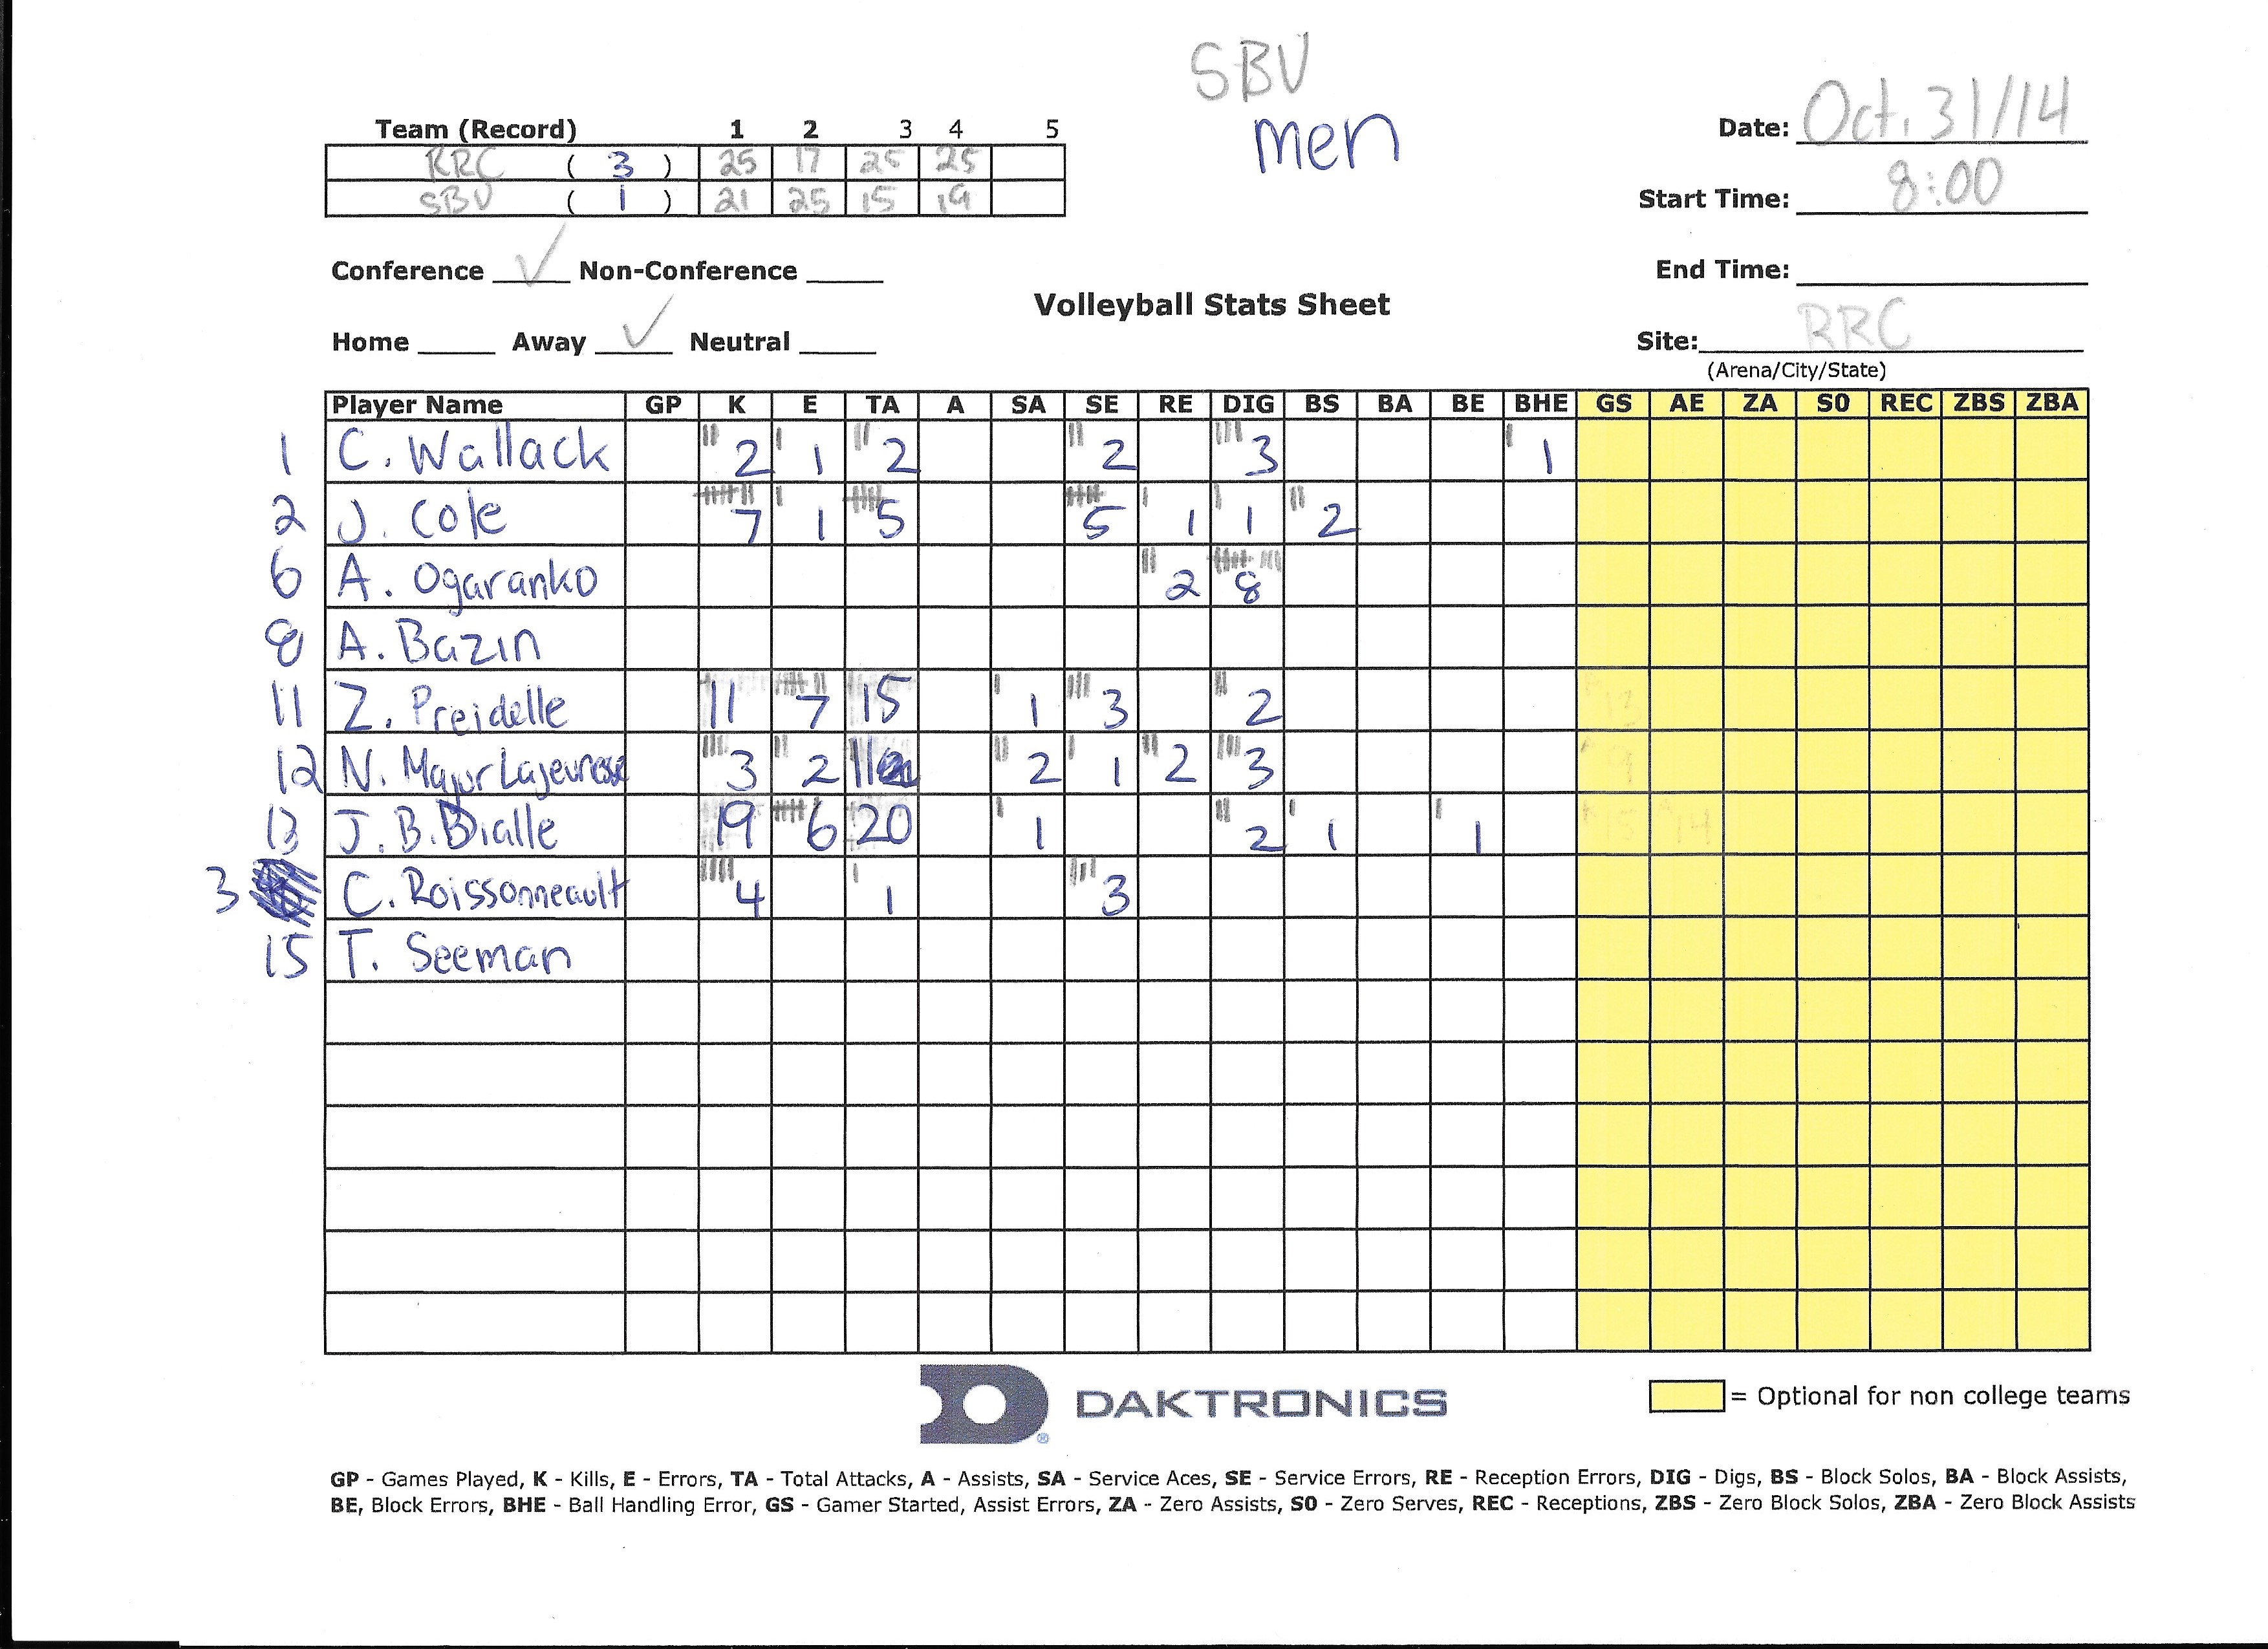 SBU
men
Team (Record) 1 2 3 4 5
RRC ( 3 ) 25 17 25 25
SBU ( 1 ) 21 25 15 19
Date: Oct. 31/14
Start Time: 8:00
Conference ✓ Non-Conference
End Time:
Volleyball Stats Sheet
Home Away ✓ Neutral
Site: RRC
(Arena/City/State)
Player Name GP K E TA A SA SE RE DIG BS BA BE BHE GS AE ZA S0 REC ZBS ZBA
1 C. Wallack 2 1 2 2 3 1
2 J. Cole 7 1 5 5 1 1 2
6 A. Ogaranko 2 8
8 A. Bazin
11 Z. Preidelle 11 7 15 1 3 2
12 N. Major Lajeunesse 3 2 11 2 1 2 3
13 J. B. Dialle 19 6 20 1 2 1 1
3 C. Roissonneault 4 1 3
15 T. Seeman
DAKTRONICS
= Optional for non college teams
GP - Games Played, K - Kills, E - Errors, TA - Total Attacks, A - Assists, SA - Service Aces, SE - Service Errors, RE - Reception Errors, DIG - Digs, BS - Block Solos, BA - Block Assists,
BE, Block Errors, BHE - Ball Handling Error, GS - Gamer Started, Assist Errors, ZA - Zero Assists, S0 - Zero Serves, REC - Receptions, ZBS - Zero Block Solos, ZBA - Zero Block Assists